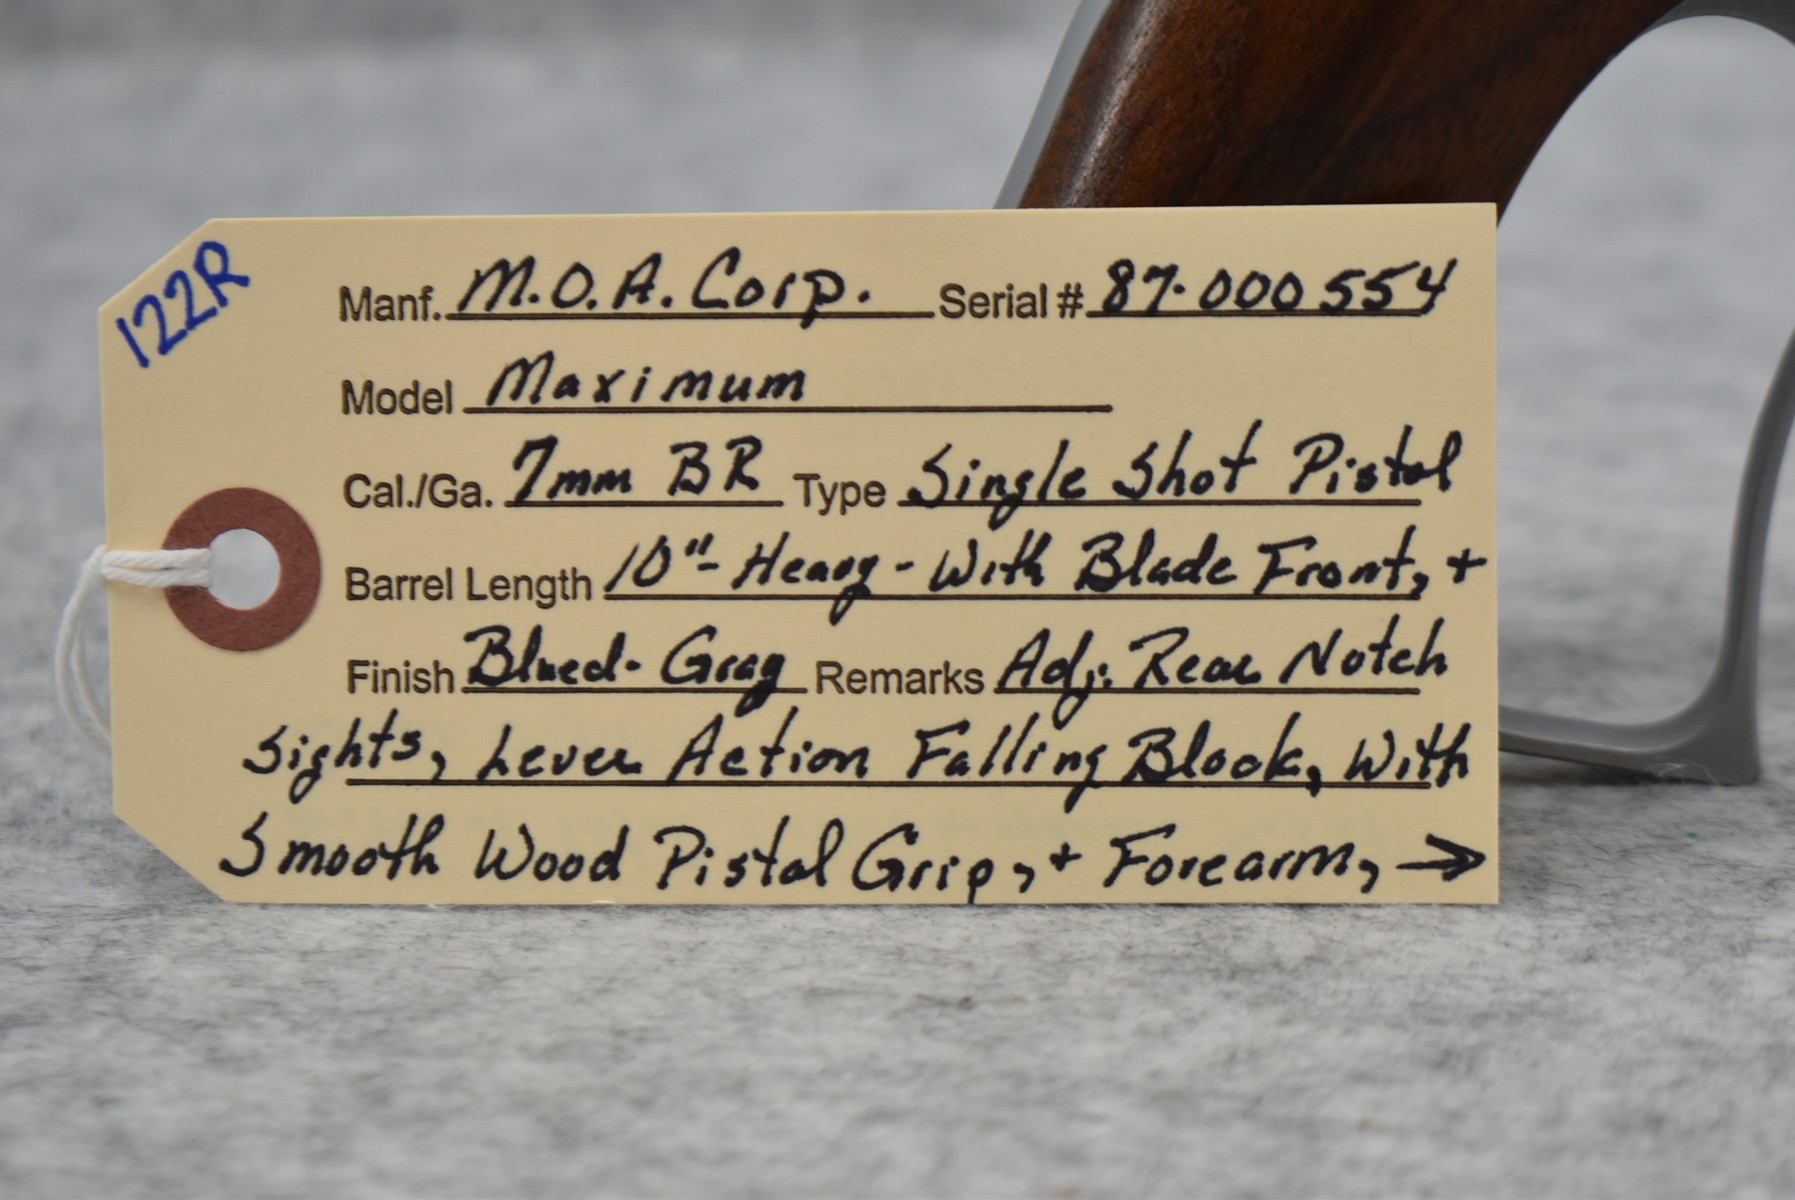 122R
Manf. M.O.A. Corp. Serial # 87-000554
Model Maximum
Cal./Ga. 7mm BR Type Single Shot Pistol
Barrel Length 10"- Heavy - With Blade Front, +
Finish Blued-Gray Remarks Adj. Rear Notch
Sights, Lever Action Falling Block, With
Smooth Wood Pistol Grip, + Forearm, →